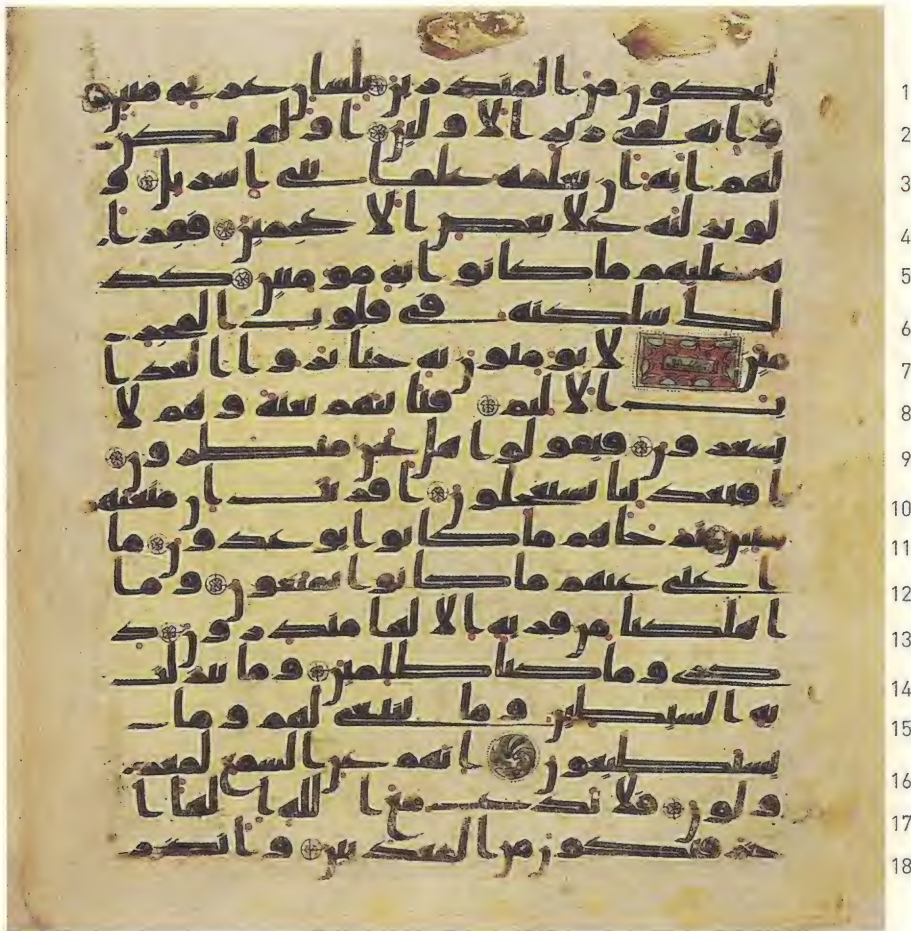 1 لتكون من المنذرين بلسان عربي مبين
2 وانه لفي زبر الاولين اولم يكن
3 لهم اية ان يعلمه علما بني اسريل و
4 لو نزلنه على بعض الاعجمين فقرا
5 ه عليهم ما كانوا به مومنين كذ
6 لك سلكنه في قلوب المجر
7 مين لا يومنون به حتى يروا العذا
8 ب الاليم فياتيهم بغتة وهم لا
9 يشعرون فيقولوا هل نحن منظرون
10 افبعذابنا يستعجلون افريت ان متعنهم
11 سنين ثم جاهم ما كانوا يوعدون ما
12 اغنى عنهم ما كانوا يمتعون وما
13 اهلكنا من قرية الا لها منذرون ذ
14 كرى وما كنا ظلمين وما تنزلت
15 به الشيطين وما ينبغي لهم وما
16 يستطيعون انهم عن السمع لمعز
17 ولون فلا تدع مع الله الها ا
18 خر فتكون من المعذبين وانذر